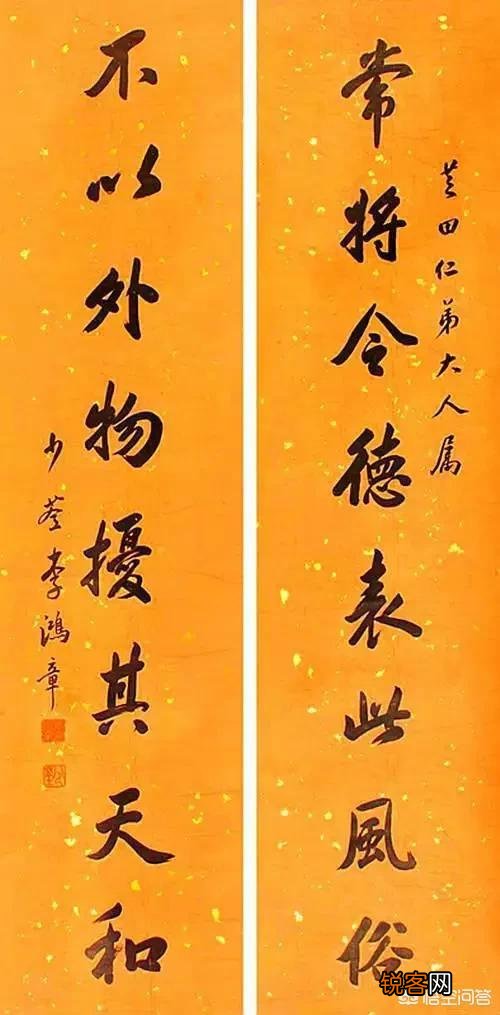 芝田仁弟大人属
常将令德表此風俗
不以外物擾其天和
少荃李鴻章
锐客网
悟空问答